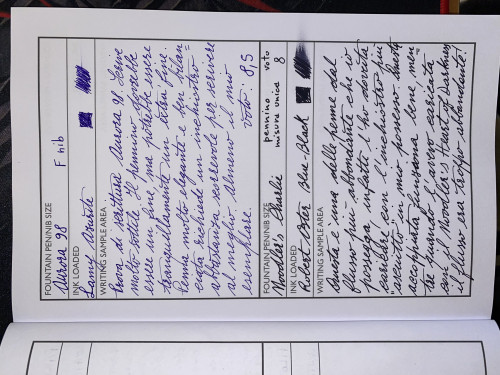 FOUNTAIN PEN/NIB SIZE
Aurora 98 F nib
INK LOADED
Lamy Azurite
WRITING SAMPLE AREA
Prova di scrittura Aurora 98. Scrive
molto sottile. Il pennino dovrebbe
essere un fine, ma potrebbe essere
tranquillamente un extra fine.
Penna molto elegante e ben bilan=
ciata richiede un inchiostro
abbastanza scorrevole per scrivere
al meglio, almeno il mio
esemplare. voto: 8,5
FOUNTAIN PEN/NIB SIZE
Noodler's Charlie pennino misura unica voto 8
INK LOADED
Robert Oster Blue-Black
WRITING SAMPLE AREA
Questa è una delle penne dal
flusso più abbondante che io
possegga, infatti l'ho dovuta
caricare con l'inchiostro più
"asciutto" in mio possesso. Questa
accoppiata funziona bene men=
tre quando l'avevo caricata
con il Noodler's Heart of Darkness
il flusso era troppo abbondante!